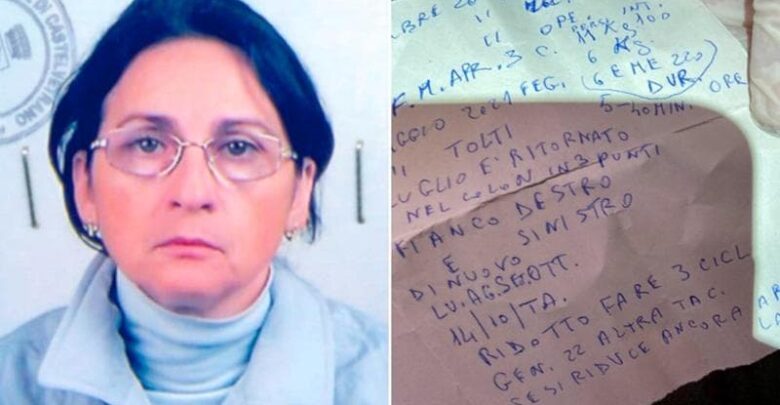 DI CASTELVETRANO
BRE 20
" OPE. INT.
F. M. APR. 3 C. 11 X 3 100
6 KG.
AGGIO 2021 FEG. (6 E ME 220)
DUR. ORE
5-40 MIN.
" TOLTI
LUGLIO E' RITORNATO
NEL COLON IN 3 PUNTI
FIANCO DESTRO
E SINISTRO
DI NUOVO
LU. AG. SE. OTT.
14/10/TA.
RIDOTTO FARE 3 CICL
GEN. 22 ALTRA TAC.
SE SI RIDUCE ANCORA